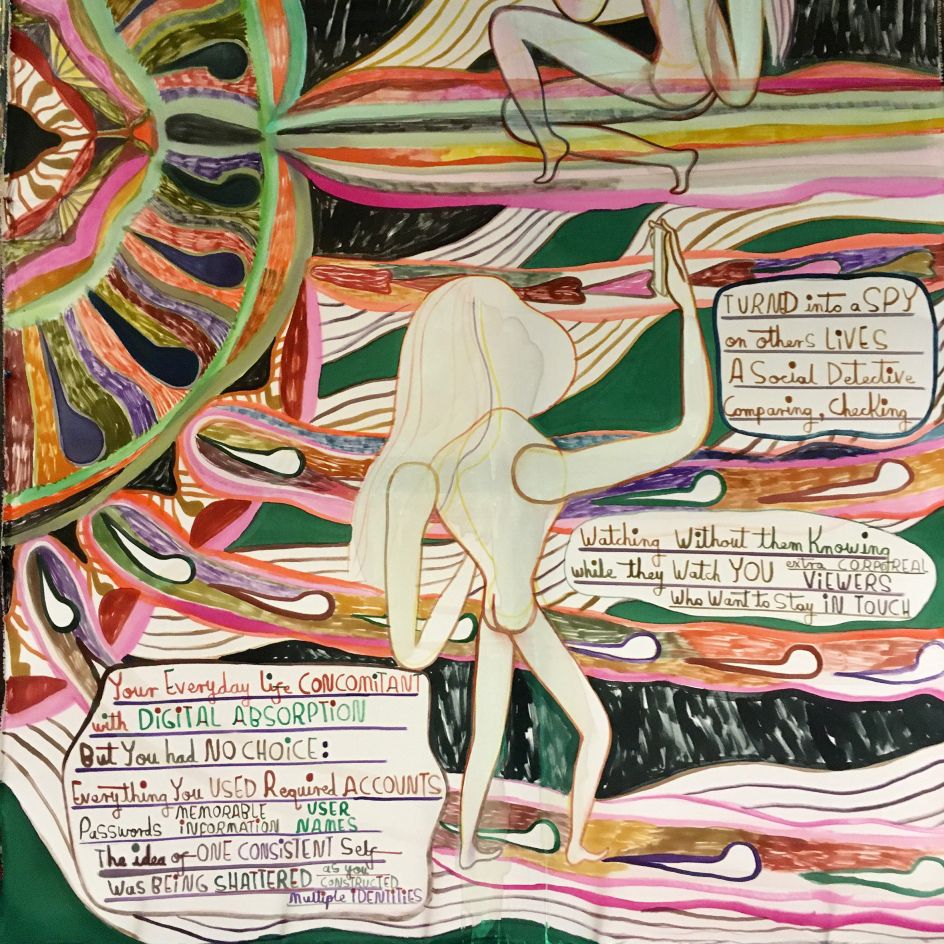 TURND into a SPY
on others LIVES
A Social Detective
Comparing, Checking
Watching Without them Knowing
while they Watch YOU extra CORPOREAL
VIEWERS
who Want to Stay IN TOUCH
Your Everyday life CONCOMITANT
with DIGITAL ABSORPTION
But You had NO CHOICE:
Everything You USED Required ACCOUNTS
Passwords MEMORABLE INFORMATION USER NAMES
The idea of ONE CONSISTENT Self
Was BEING SHATTERED as you CONSTRUCTED
Multiple IDENTITIES